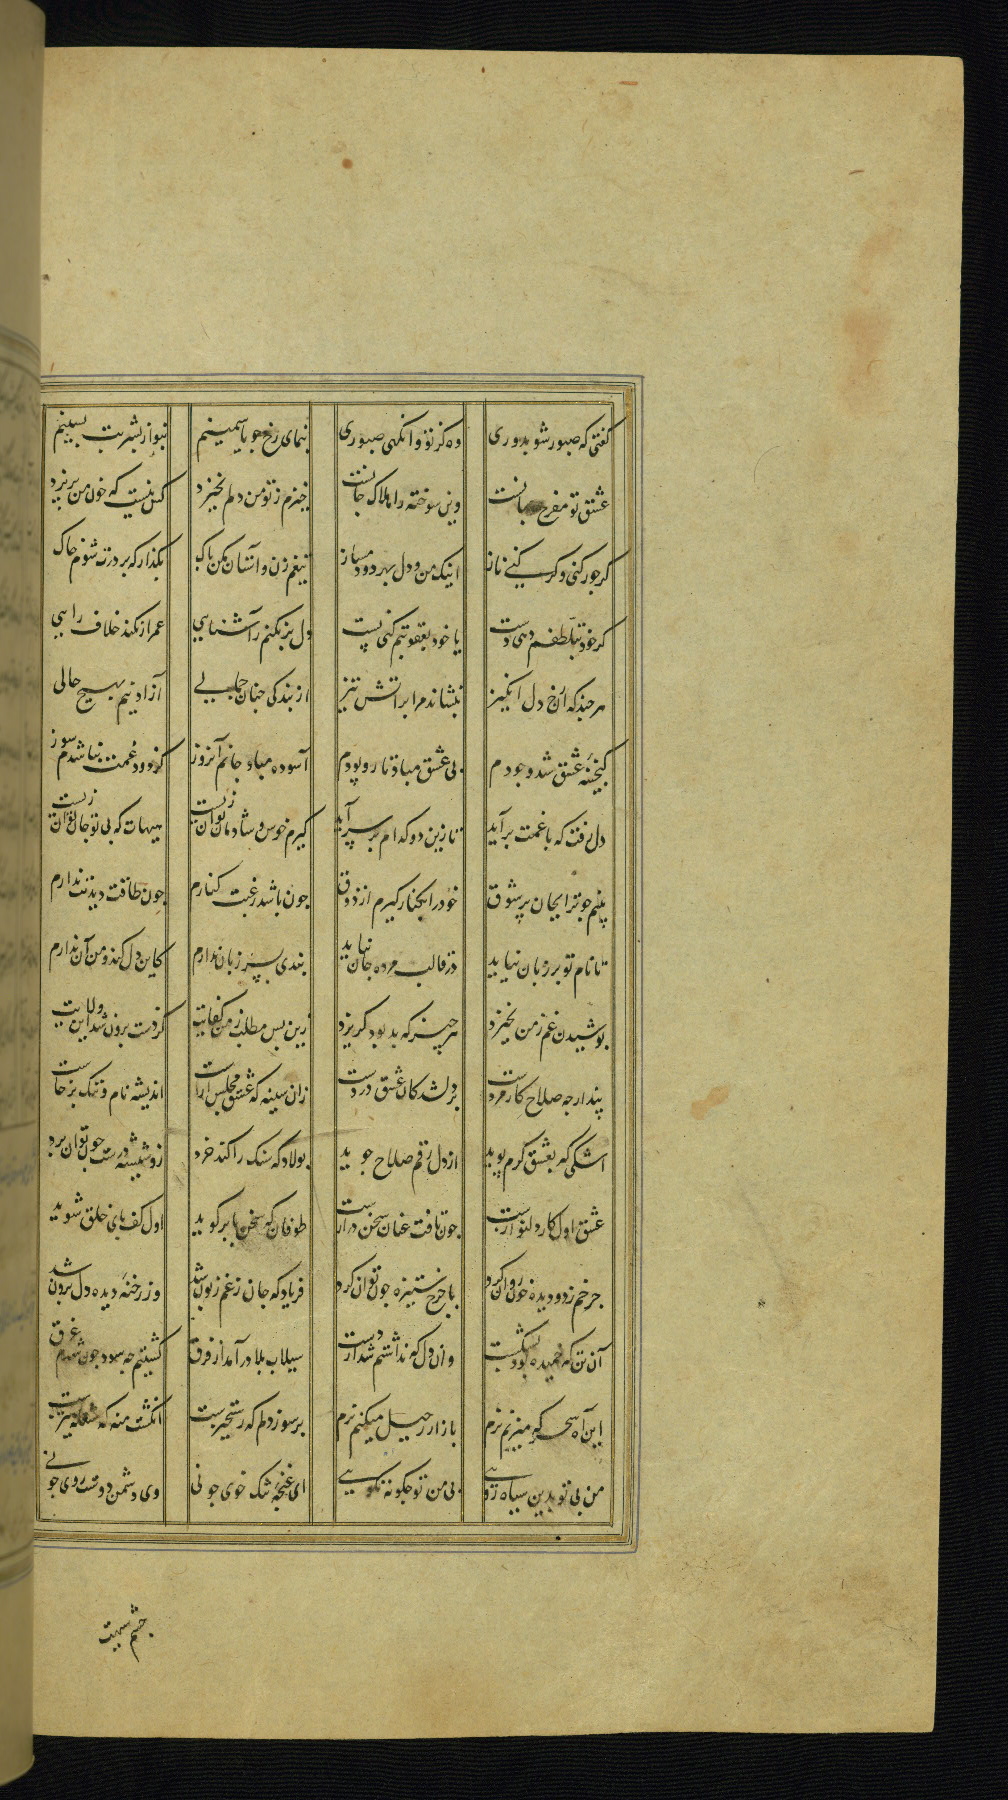 گفتی که صبور شو بدوری وه کز تو وانگهی صبوری بنمای رخ چو یاسمینم بنواز بشربت پسینم
عشق تو مفرح جهانست وین سوخته را هلاک جانست خیزم ز تو من دلم نخیزد کس نیست که خون من بریزد
گر جور کنی و گر کنی ناز اینک من و دل بهر دو دمساز تیغم زن و آنسان بکن پاک بگذار که بر درت شوم خاک
گر خود بتلطفم دهی دست یا خود بعقوبتم کنی پست دل بز نکنم ز آشنایی عمر از نکند خلاف رایی
هر چند که آن رخ دل انگیز بنشاند مرا بر آتش تیز از بندگی چنان جمالی آزاد نیم بهیچ حالی
گنجینهٔ عشق شد وجودم بی عشق مباد تار و پودم آسوده مباد جانم آنروز کز دود غمت نباشدم سوز
دل رفت که با غمت برآید تا زین دو کدام بر سر آید گیرم خوش و شادمان توان زیست هیهات که بی تو جان توان زیست
بینم چو ترا بجان پر شوق خود را بکنار گیرم از ذوق چون باشد رغبت کنارم چون طاقت دیدنت ندارم
تا نام تو بر زبان نیاید در قالب مرده جان نیاید بندی بسر زبان ندارم کاین دل کند و من آن ندارم
پوشیدن غم ز من نخیزد هر چیز که بد بود گریزد زین بس مطلب ز من کفایت کز دست برون شد این ولایت
پندار چه صلاح کار مردست بر دل شدگان عشق دردست زان سینه که عشق مجلس آراست اندیشه نام و ننگ برخاست
اشکی که بعشق گرم پوید از دل رقم صلاح جوید پولاد که سنگ را کند خرد زو شیشه درست چون توان برد
عشق اول کار دلنوازست چون تافت عنان سخن درازست طوفان که سخن بابر گوید اول کف پای خلق شوید
چرخم ز دو دیده خون روان کرد با چرخ ستیزه چون توان کرد فریاد که جان ز غم زبون شد وز رخنهٔ دیده دل برون شد
آن تن که خمیده بود بشکست وان دل که نداشتم شد از دست سیلاب بلا در آمد از فرق کشتیم چه سود چون شدم غرق
این آه سحر که میزنم نرم بازار رحیل میکنم گرم بر سوز دلم که رستخیزست انگشت منه که شعله تیزست
من بی تو بدین سیاه رویی بی من تو چگونه نگویی ای غنچهٔ تنگ خوی چونی وی دشمن دوست روی چونی
چشم سیهت